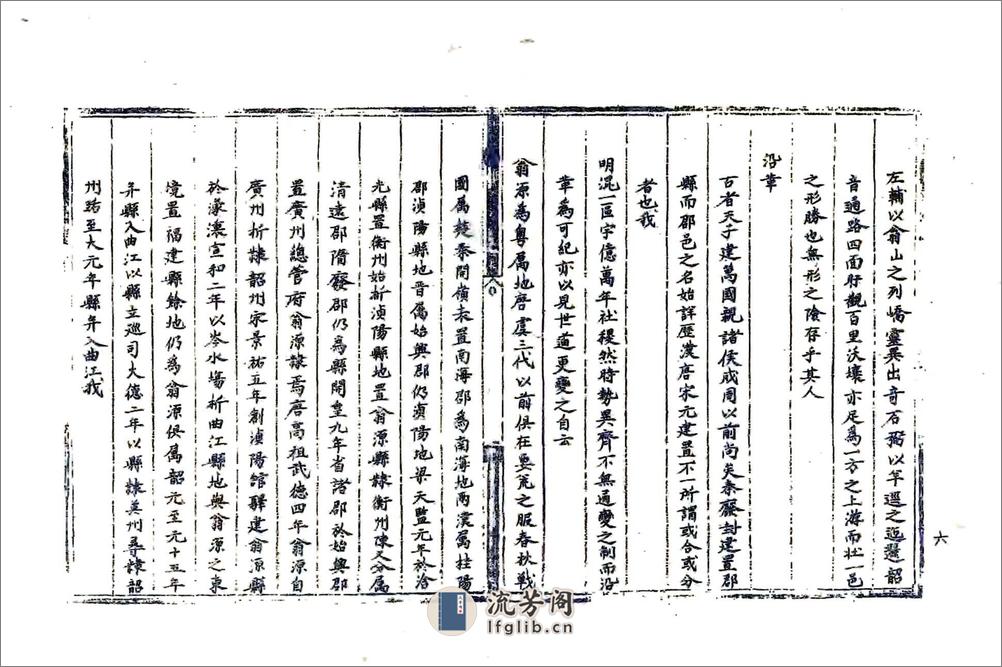 左輔以翁山之列嶠靈異出奇石弼以軍巡之迤邐韶
音通路四面肝觀百里沃壤亦足為一方之上游而壮一邑
之形勝也無形之險存乎其人
沿革
古者天子建萬國親諸侯成周以前尚矣秦廢封建置郡
縣而郡邑之名始詳歷漢唐宋元建置不一所謂或合或分
者也我
明混一區宇億萬年社稷然時勢異齊不無通變之制而沿
革為可紀亦以見世道更變之自云
翁源為粵屬地唐虞三代以前俱在要荒之服春秋戰
國屬楚秦開嶺表置南海郡為南海地两漢屬桂陽
郡湞陽縣地晋屬始興郡仍湞陽地梁天監元年於洽
光縣置衡州始析湞陽縣地置翁源縣隸衡州陳又分屬
清遠郡隋廢郡仍為縣開皇九年省諸郡於始興郡
置廣州總管府翁源隸焉唐高祖武德四年翁源自
廣州折隸韶州宋景祐五年創湞陽館驛建翁源縣
於濛瀼宣和二年以岑水塲析曲江縣地與翁源之東
境置福建縣餘地仍為翁源俱屬韶元至元十五年
并縣入曲江以縣立巡司大德二年以縣隸英州尋隸韶
州路至大元年縣并入曲江我
八
六
流芳阁
lfglib.cn